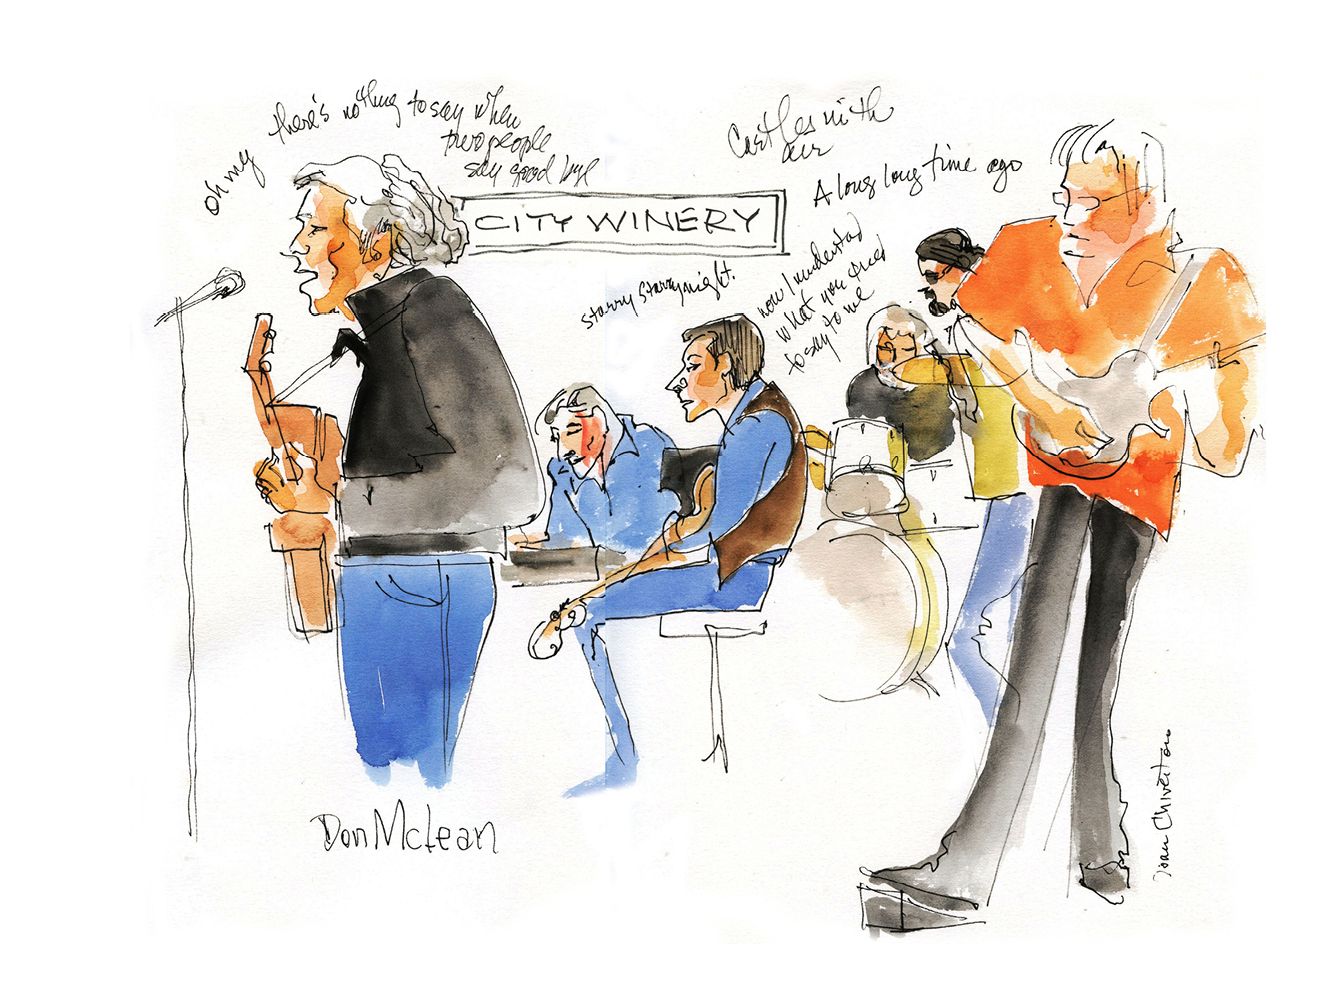 oh my there's nothing to say when
two people
say good bye
Castles in the
air
A long long time ago
CITY WINERY
starry starry night.
now I understand
what you tried
to say to me
Don McLean
Joan Chiverton